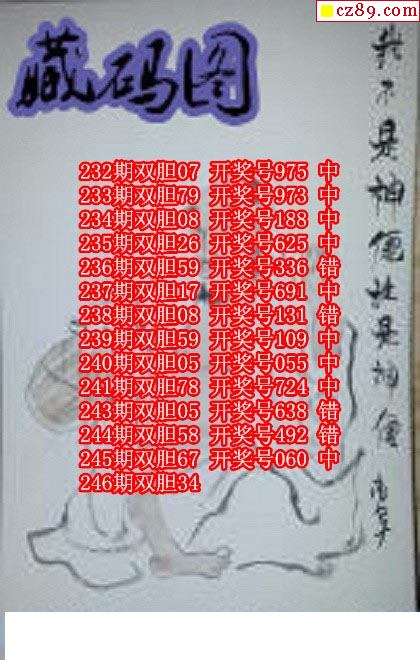 cz89.com
藏码图
232期双胆07 开奖号975 中
233期双胆79 开奖号973 中
234期双胆08 开奖号188 中
235期双胆26 开奖号625 中
236期双胆59 开奖号336 错
237期双胆17 开奖号691 中
238期双胆08 开奖号131 错
239期双胆59 开奖号109 中
240期双胆05 开奖号055 中
241期双胆78 开奖号724 中
243期双胆05 开奖号638 错
244期双胆58 开奖号492 错
245期双胆67 开奖号060 中
246期双胆34
我不是神便是神